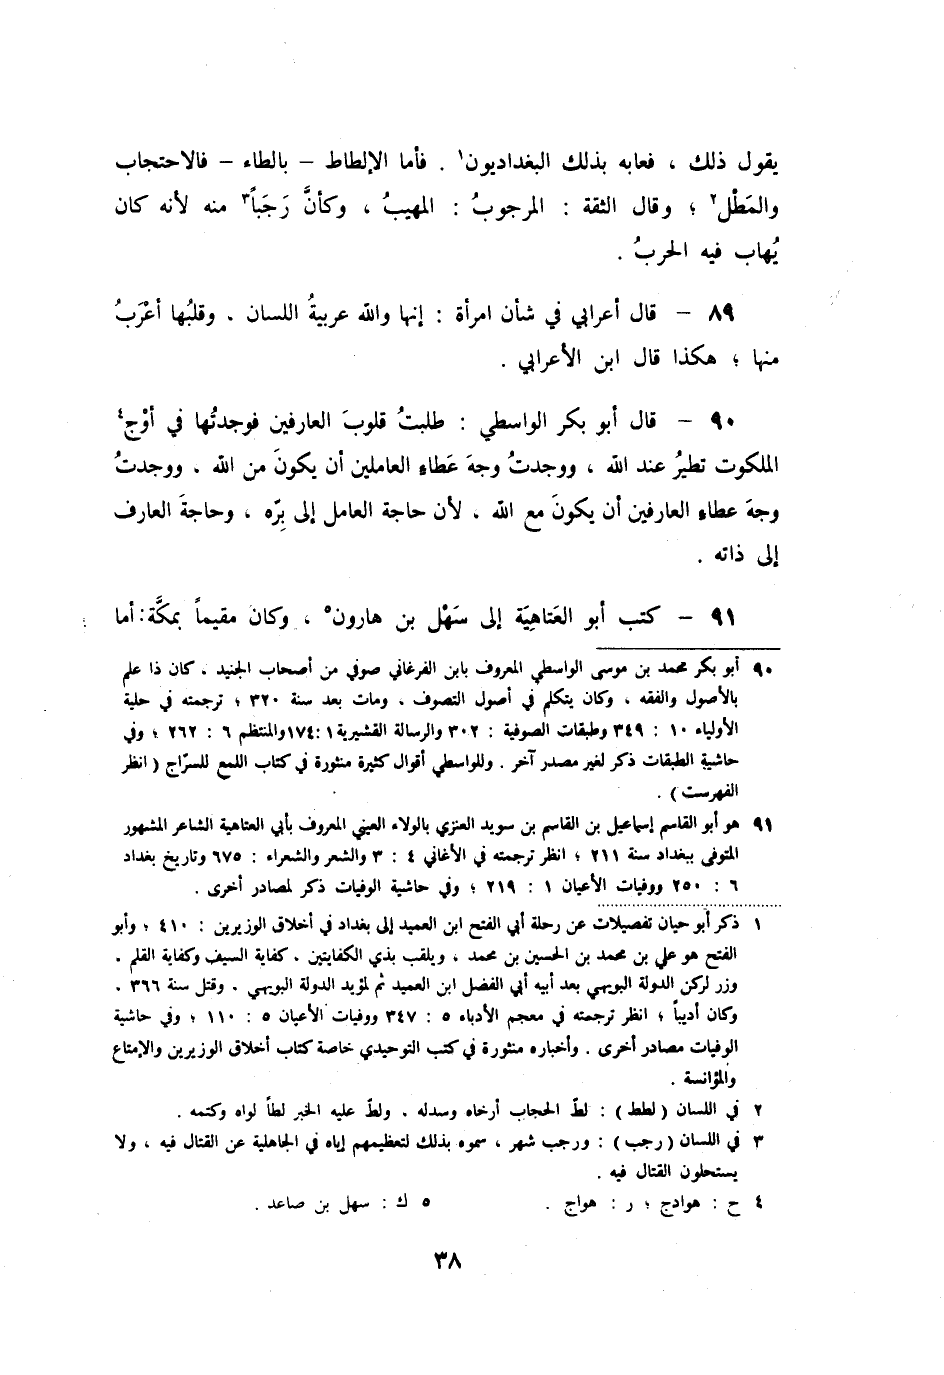 يقول ذلك ، فعابه بذلك البغداديون١ . فأما الإلطاط – بالطاء – فالاحتجاب
والمَطْل٢ ؛ وقال الثقة : المرجوبُ : المهيبُ ، وكأنَّ رَجَباً٣ منه لأنه كان
يُهاب فيه الحربُ .
٨٩ – قال أعرابي في شأن امرأة : إنها والله عربيةُ اللسان ، وقلبُها أعْرَبُ
منها ؛ هكذا قال ابن الأعرابي .
٩٠ – قال أبو بكر الواسطي : طلبتُ قلوبَ العارفين فوجدتُها في أوْج٤
الملكوت تطيرُ عند الله ، ووجدتُ وجهَ عَطاءِ العاملين أن يكونَ من الله ، ووجدتُ
وجهَ عطاءِ العارفين أن يكونَ مع الله ، لأن حاجة العامل إلى بِرّه ، وحاجةَ العارف
إلى ذاته .
٩١ – كتب أبو العَتاهِيَة إلى سَهْل بن هارون٥ ، وكان مقيماً بمكَّة : أما
٩٠ أبو بكر محمد بن موسى الواسطي المعروف بابن الفرغاني صوفي من أصحاب الجنيد ، كان ذا علم
بالأصول والفقه ، وكان يتكلم في أصول التصوف ، ومات بعد سنة ٣٢٠ ؛ ترجمته في حلية
الأولياء ١٠ : ٣٤٩ وطبقات الصوفية : ٣٠٢ والرسالة القشيرية ١ : ١٧٤ والمنتظم ٦ : ٢٦٢ ؛ وفي
حاشية الطبقات ذكر لغير مصدر آخر . وللواسطي أقوال كثيرة منثورة في كتاب اللمع للسرّاج ( انظر
الفهرست ) .
٩١ هو أبو القاسم إسماعيل بن القاسم بن سويد العنزي بالولاء العيني المعروف بأبي العتاهية الشاعر المشهور
المتوفى ببغداد سنة ٢١١ ؛ انظر ترجمته في الأغاني ٤ : ٣ والشعر والشعراء : ٦٧٥ وتاريخ بغداد
٦ : ٢٥٠ ووفيات الأعيان ١ : ٢١٩ ؛ وفي حاشية الوفيات ذكر لمصادر أخرى .
١ ذكر أبو حيان تفصيلات عن رحلة أبي الفتح ابن العميد إلى بغداد في أخلاق الوزيرين : ٤١٠ ؛ وأبو
الفتح هو علي بن محمد بن الحسين بن محمد ، ويلقب بذي الكفايتين ، كفاية السيف وكفاية القلم ،
وزر لركن الدولة البويهي بعد أبيه أبي الفضل ابن العميد ثم لمؤيد الدولة البويهي ، وقتل سنة ٣٦٦ ،
وكان أديباً ؛ انظر ترجمته في معجم الأدباء ٥ : ٣٤٧ ووفيات الأعيان ٥ : ١١٠ ؛ وفي حاشية
الوفيات مصادر أخرى . وأخباره منثورة في كتب التوحيدي خاصة كتاب أخلاق الوزيرين والإمتاع
والمؤانسة .
٢ في اللسان ( لطط ) : لطّ الحجاب أرخاه وسدله ، ولطّ عليه الخبر لطاً لواه وكتمه .
٣ في اللسان ( رجب ) : ورجب شهر ، سموه بذلك لتعظيمهم إياه في الجاهلية عن القتال فيه ، ولا
يستحلون القتال فيه .
٤ ح : هوادج ؛ ر : هواج .   ٥ ك : سهل بن صاعد .
٣٨